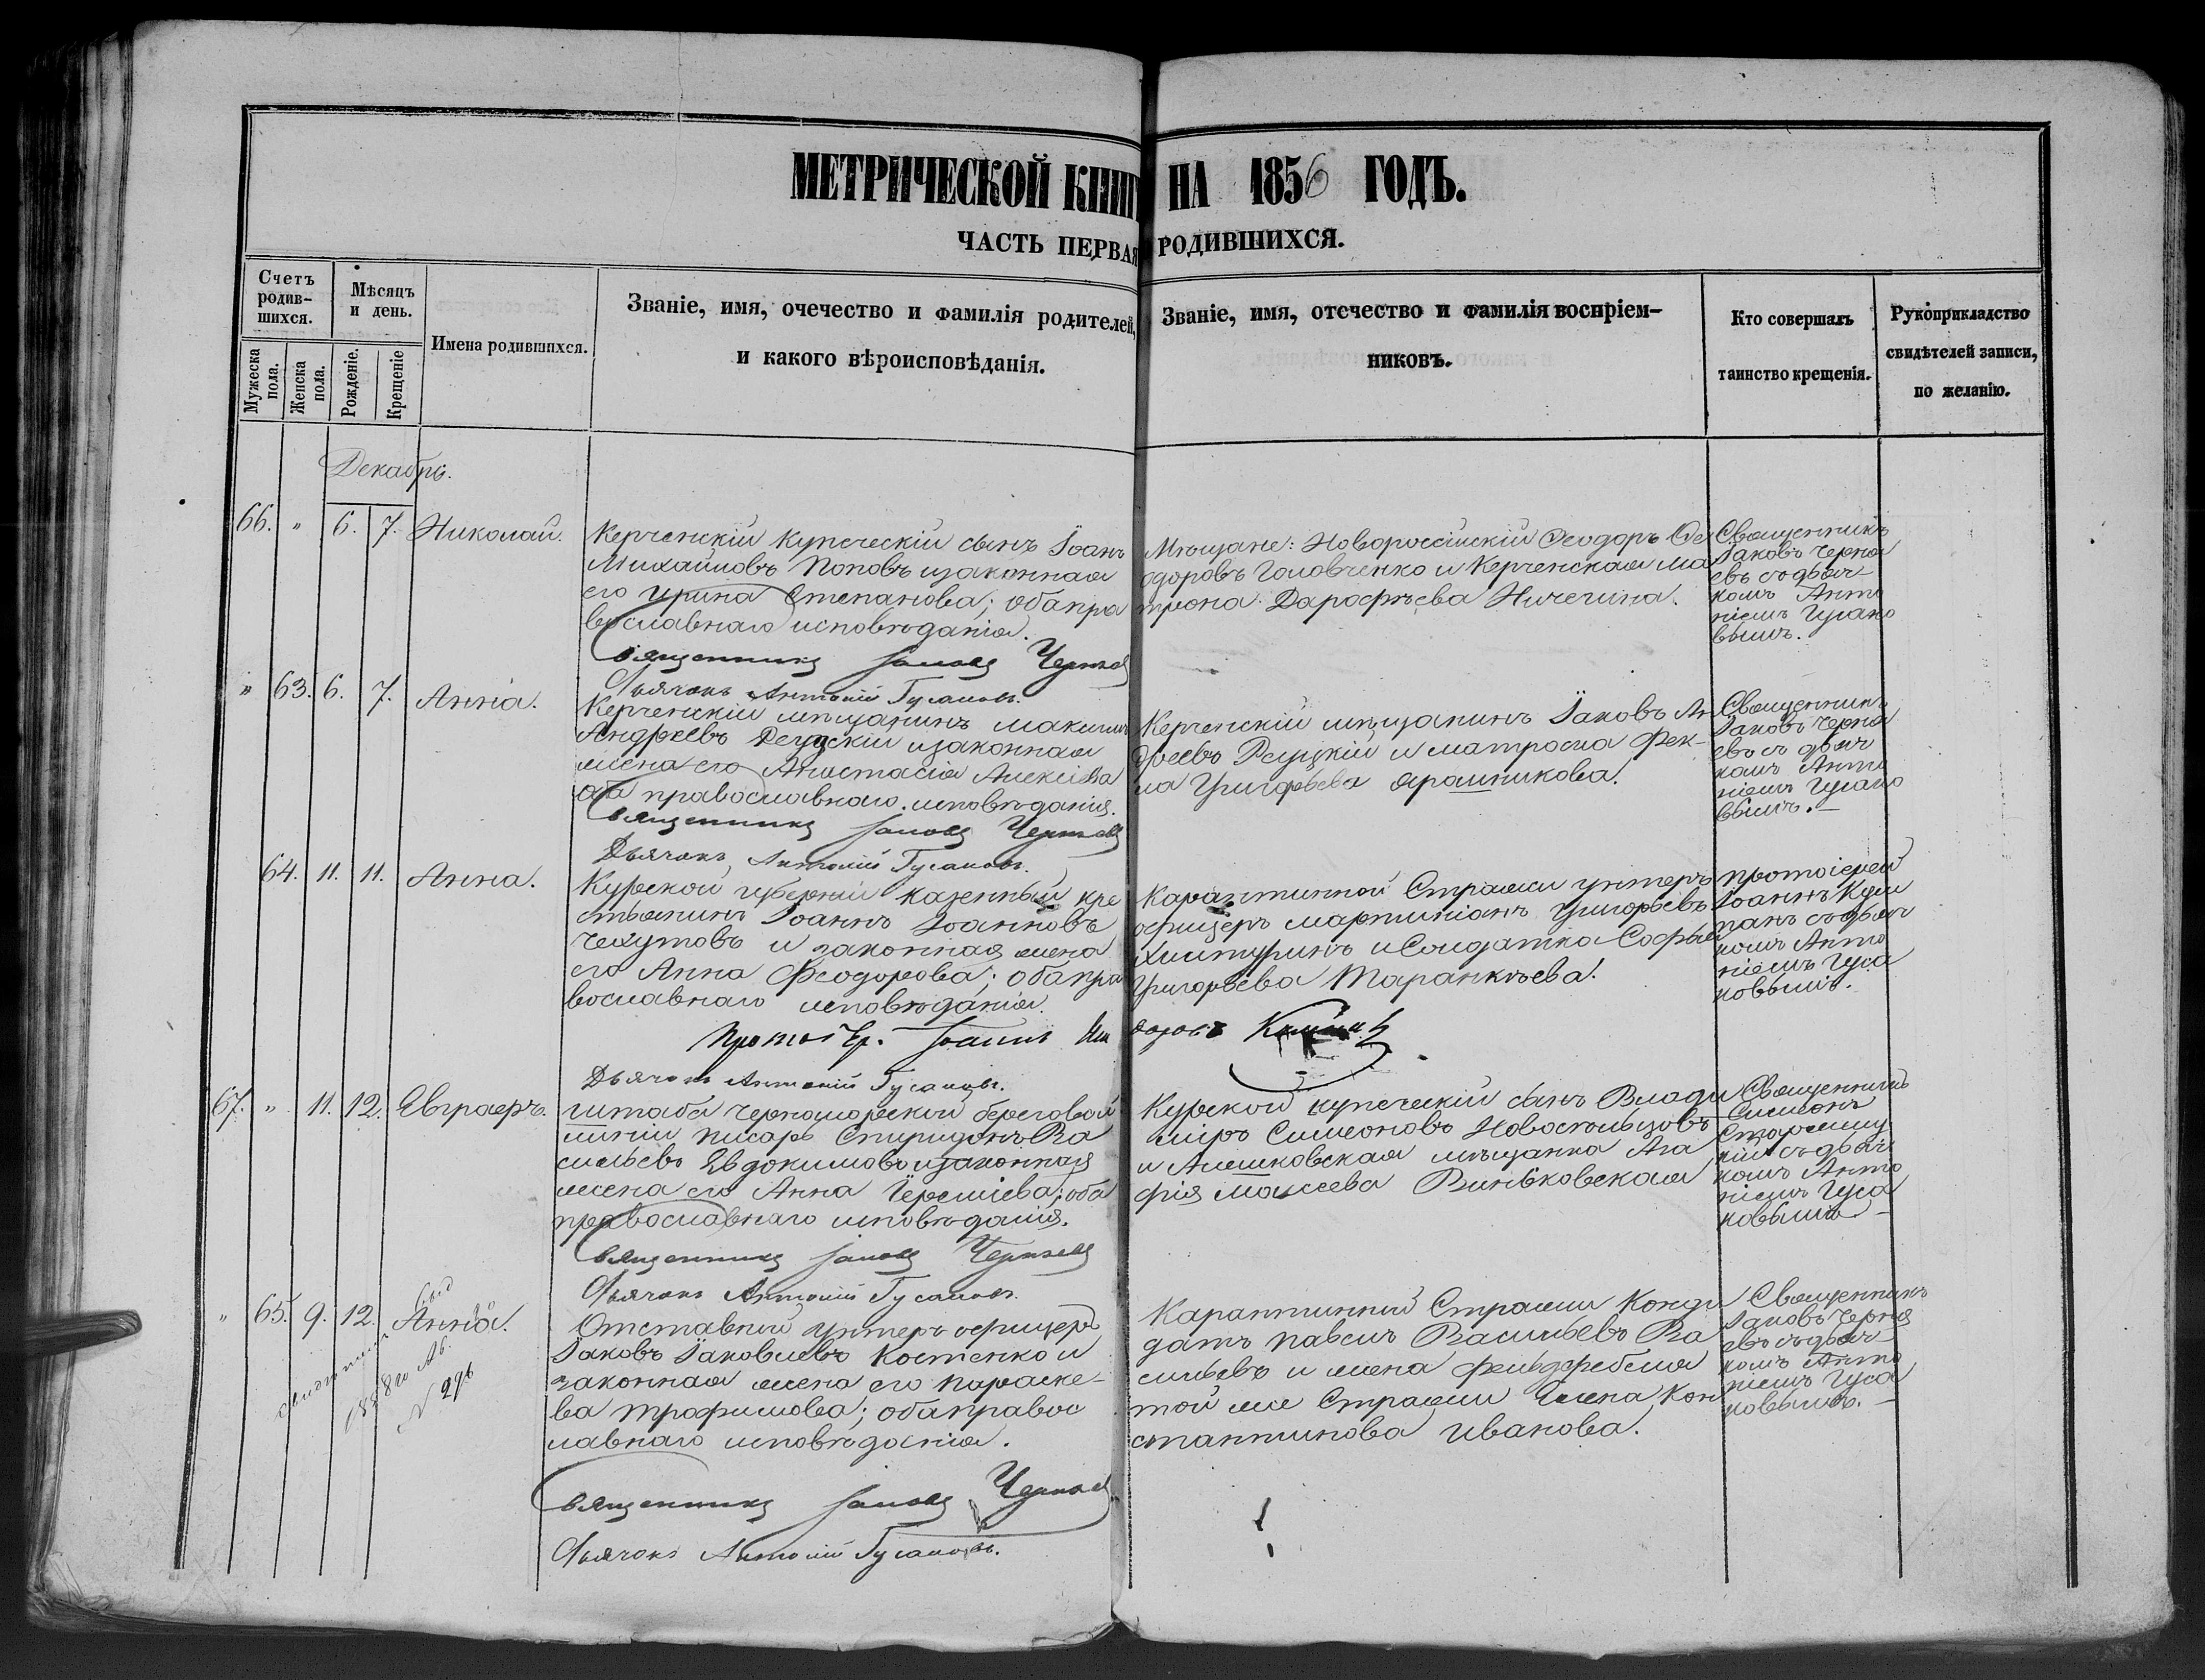 МЕТРИЧЕСКОЙ КНИГ НА 1856 ГОДЪ.
ЧАСТЬ ПЕРВАЯ РОДИВШИХСЯ.
Счетъ родив-
шихся.
Мужеска пола.
Женска пола.
Мѣсяцъ
и день.
Рожденіе.
Крещеніе
Имена родившихся.
Званіе, имя, очечество и фамилія родителей,
и какого вѣроисповѣданія.
Званіе, имя, отечество и фамилія воспріем-
никовъ.
Кто совершалъ
таинство крещенія.
Рукоприкладство
свидѣтелей записи,
по желанію.
Декабрь.
66. " 6. 7. Николай.
Керченскій купеческій сынъ Іоанъ
Михайловъ Поповъ изаконная
его Ирина Степанова; оба пра
вославнаго исповѣданія.
Священникъ Іаковъ Черняев
Дьячокъ Антоній Гусаковъ.
Мѣщане: Новоросійскій Феодоръ Фе
одоровъ Головченко и Керченская Ма
трона Дарофѣева Ничегина.
Священникъ
Іаковъ Черня
евъ съ дьяч
комъ Анто
ніемъ Гусако
вымъ.
" 63. 6. 7. Анна.
Керченскій мѣщанинъ Максимъ
Андреевъ Реуцкій изаконная
жена его Анастасія Алексіева
оба православнаго исповѣданія.
Священникъ Іаковъ Черняевъ
Дьячокъ Антоній Гусаковъ.
Керченскій мѣщанинъ Іаковъ Ан
дреевъ Реуцкій и матроска Фек-
ла Григорьева Ярошникова.
Священникъ
Іаковъ Черня
евъ съ дьяч
комъ Анто
ніемъ Гусако
вымъ.
64. 11. 11. Анна.
Курской губерніи казенный кре
стьянинъ Іоаннъ Іоанновъ
Чехутовъ и законная жена
его Анна Феодорова; оба пра
вославнаго исповѣданія.
Протоіер. Іоаннъ
Дьячокъ Антоній Гусаковъ.
Карантинной Стражи унтеръ
офицеръ Мартиніанъ Григорьевъ
и Солдатка Софья
Григорьева Таранкѣева.
протоіерей
Іоаннъ Кум
панъ съ дьяч
комъ Анто
ніемъ Гуса
ковымъ.
67. " 11. 12. Евграфъ.
штаба Черноморской береговой
линіи писарь Спиридонъ Ва
сильевъ Евдокимовъ изаконная
жена его Анна Іереміева; оба
православнаго исповѣданія.
Священникъ Іаковъ Черняевъ
Дьячокъ Антоній Гусаковъ.
Курской купеческій сынъ Влади
міръ Симеоновъ Новосѣльцовъ
и Алешковская мѣщанка Ага
фія Моисеева Виньковская
Священникъ
Симеонъ
Стороженц
кій съ дьяч
комъ Анто
ніемъ Гуса
ковымъ
" 65. 9. 12. Анна.
1858го
N 296
Отставный унтеръ офицеръ
Іаковъ Іаковлевъ Костенко и
законная жена его Параске-
ва Трофимова; оба правос
лавнаго исповѣданія.
Священникъ Іаковъ Черняев
Дьячокъ Антоній Гусаковъ.
Карантинной Стражи Конди
датъ Павелъ Васильевъ Ва
сильевъ и жена фельдфебеля
той же Стражи Елена Кон
стантинова Иванова.
Священникъ
Іаковъ Черня
евъ съ дьяч
комъ Анто
ніемъ Гуса
ковымъ.